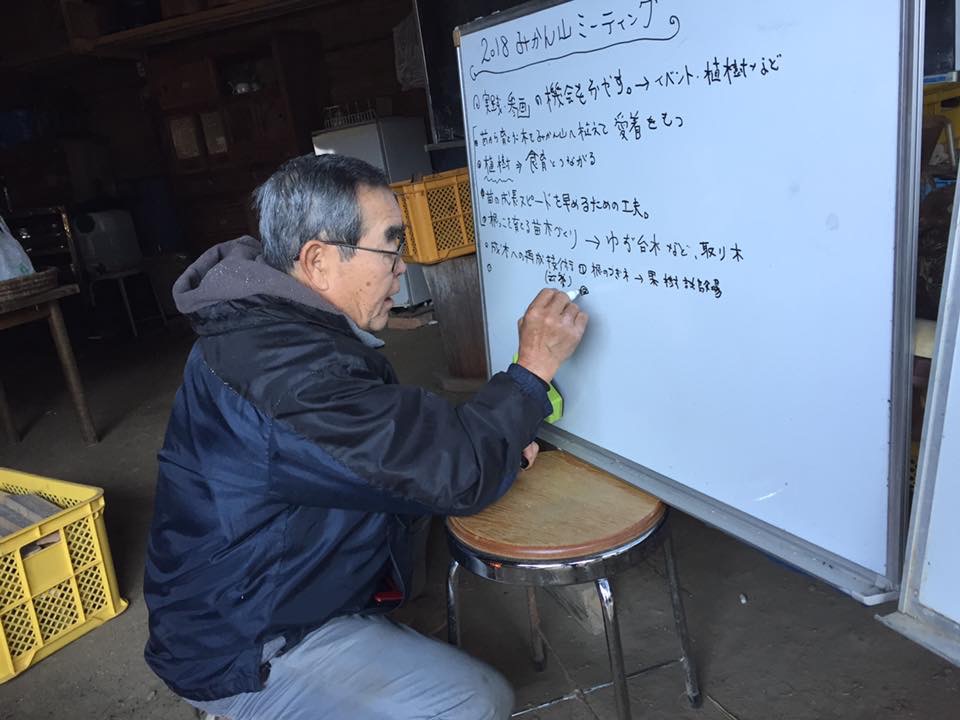 2018 みかん山ミーティング
◎実践・参画の機会をふやす。→イベント・植樹など
苗から育てた木をみかん山へ植えて 愛着をもつ
植樹⇒食育とつながる
苗の成長スピードを早めるための工夫。
根っこを育てる苗木づくり → ゆず台木など、取り木
成木への再成 接作り ① 根のつぎ木 → 果樹試験場
②